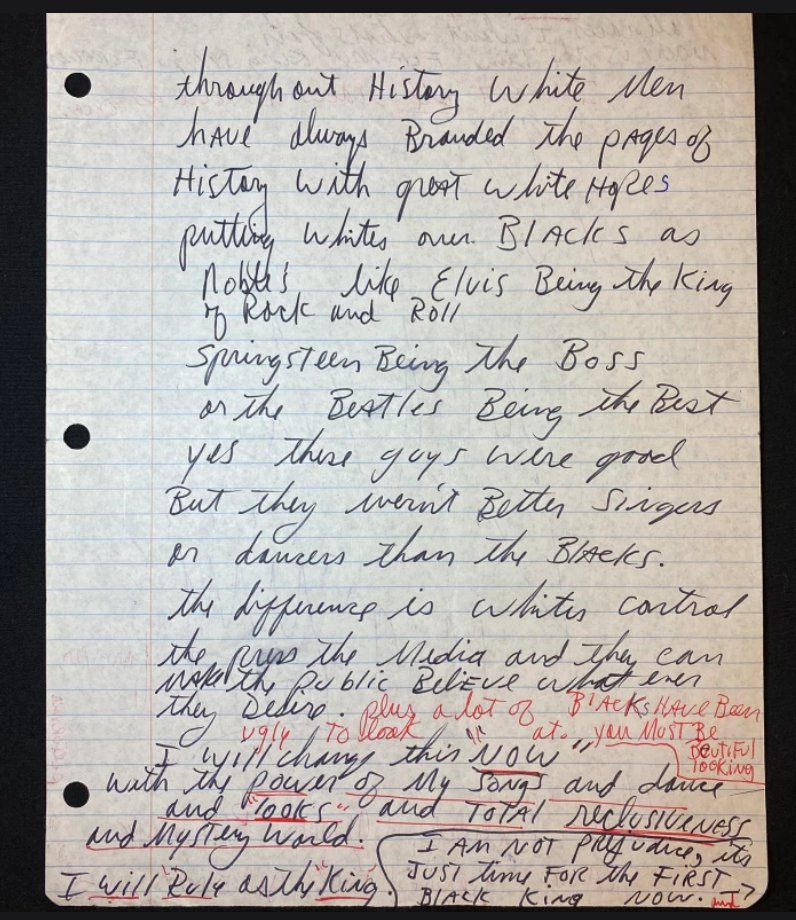 throughout History white Men
hAve always Branded the pAges of
History with great white HoPes
putting whites over BlAcks as
Nobles like Elvis Being the King
of Rock and Roll
Springsteen Being the Boss
or the Beatles Being the Best
yes these guys were good
But they wern't Better Singers
or dancers than the BlAcks.
the difference is whites control
the press the Media and they can
make the public BeliEve what ever
they Desire. plus a lot of BlAcks HAVE BEEN
ugly To look at. you MUST BE
BEUTIFUL
looking
I will change this "NOW"
with the power of My Songs and dance
and "looks" and TOTAL reclusiveness
and Mystery World.
I will "Rule as the "King".
I AM NOT prejudice, its
JUST time FOR the FIRST
BLACK King NOW.